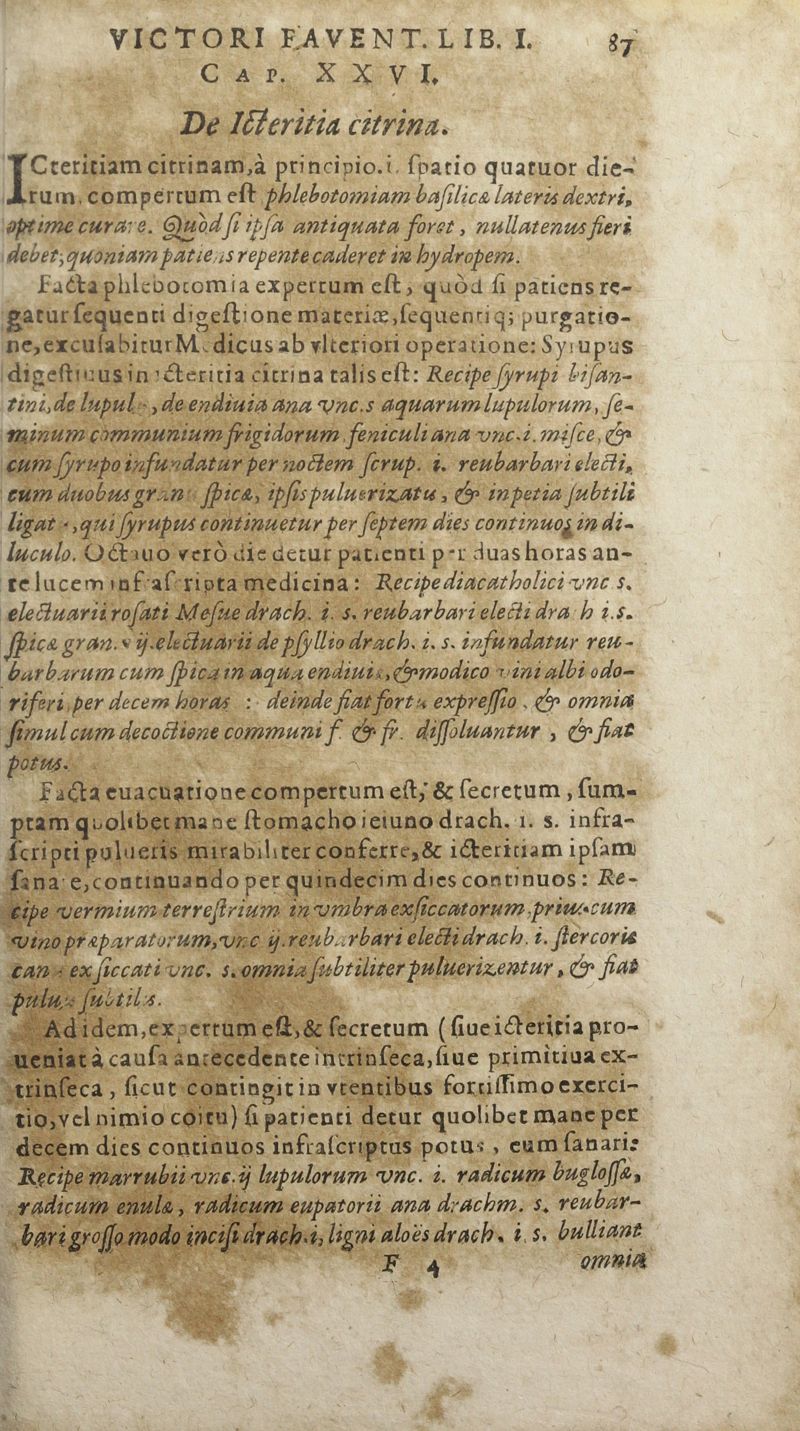 VICTORI FAVENT. LIB. I. 87
CAP. XXVI.
De Icteritia citrina.
ICteritiam citrinam,à principio.i. ſpatio quatuor die-
rum, compertum eſt phlebotomiam baſilicæ lateris dextri,
optime curare. Quòd ſi ipſa antiquata foret, nullatenus fieri
debet, quoniam patiens repente caderet in hydropem.
Facta phlebotomia expertum eſt, quòd ſi patiens re-
gatur ſequenti digeſtione materiæ, ſequentiq; purgatio-
ne, excuſabitur Medicus ab vlteriori operatione: Syrupus
digeſtiuus in icteritia citrina talis eſt: Recipe ſyrupi biſan-
tini, de lupul , de endiuia ana vnc.s aquarum lupulorum, ſe-
minum communium frigidorum feniculi ana vnc.i. miſce, &
cum ſyrupo infundatur per noctem ſcrup. i. reubarbari electi,
cum duobus gran ſpicæ, ipſis puluerizatis, & in petia ſubtili
ligat , qui ſyrupus continuetur per ſeptem dies continuos in di-
luculo. Octauo verò die detur patienti per duas horas an-
te lucem infraſcripta medicina: Recipe diacatholici vnc s.
electuarii roſati Meſue drach. i. s. reubarbari electi drach i.s.
ſpicæ gran. ij. electuarii de pſyllio drach. i. s. infundatur reu-
barbarum cum ſpica in aqua endiuiæ, & modico vini albi odo-
riferi per decem horas : deinde fiat fortis expreſſio , & omnia
ſimul cum decoctione communi f. & fr. diſſoluantur , & fiat
potus.
Facta euacuatione compertum eſt, & ſecretum , ſum-
ptam quolibet mane ſtomacho ieiuno drach. i. s. infra-
ſcripti pulueris mirabiliter conferre, & icteritiam ipſam
ſanare, continuando per quindecim dies continuos: Re-
cipe vermium terreſtrium in vmbra exſiccatorum, prius cum
vino præparatorum, vnc ij. reubarbari electi drach. i. ſtercoris
can exſiccati vnc. s. omnia ſubtiliter puluerizentur , & fiat
puluis ſubtilis.
Ad idem, expertum eſt, & ſecretum (ſiue icteritia pro-
ueniat à cauſa antecedente intrinſeca, ſiue primitiua ex-
trinſeca , ſicut contingit in vtentibus fortiſſimo exerci-
tio, vel nimio coitu) ſi patienti detur quolibet mane per
decem dies continuos infraſcriptus potus , eum ſanari:
Recipe marrubii vnc. ij lupulorum vnc. i. radicum bugloſſæ,
radicum enulæ , radicum eupatorii ana drachm. s. reubar-
bari groſſo modo inciſi drach. i, ligni aloës drach. i. s. bulliant
F 4 omnia